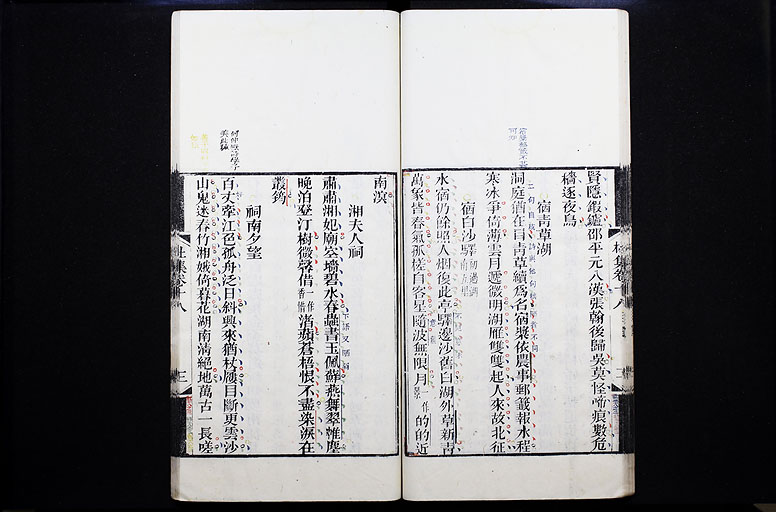 賢隱鍛鑪邵平元入漢張翰後歸吳莫怪啼痕數危
檣逐夜烏
宿青草湖
洞庭猶在目青草續爲名宿槳依農事郵籤報水程
寒冰爭倚薄雲月遞微明湖雁雙雙起人來故北征
宿白沙驛初過湖南五里
水宿仍餘照人烟復此亭驛邊沙舊白湖外草新青
萬象皆春氣孤槎自客星隨波無限月一作 的的近
南溟
湘夫人祠
肅肅湘妃廟空牆碧水春蟲書玉佩蘚燕舞翠帷塵
晚泊登汀樹微馨借一作香惜渚蘋蒼梧恨不盡染淚在
叢筠
祠南夕望
百丈牽江色孤舟泛日斜興來猶杖屨目斷更雲沙
山鬼迷春竹湘娥倚暮花湖南清絕地萬古一長嗟
杜集卷十八
三